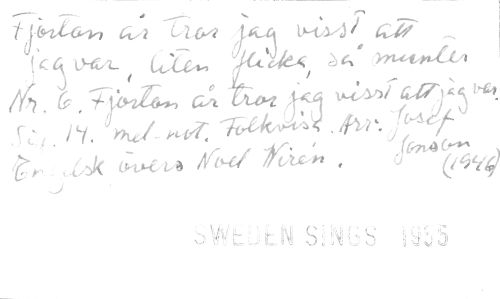 Fjorton år tror jag visst att
jag var, liten flicka, så munter
Nr. 6. Fjorton år tror jag visst att jag var.
Sid. 14. mel-not. Folkvisa. Arr: Josef
Jonson
Engelsk övers Noel Wirén. (1946)
SWEDEN SINGS 1955